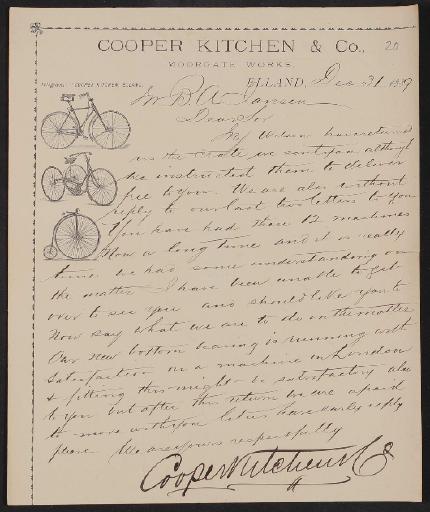 COOPER KITCHEN & Co.,
20
MOORGATE WORKS
ELLAND, Dec 31 1889
COOPER KITCHEN ELLAND
Mr B. A. Jansen
Dear Sir
Wilson have returned
us the crate we sent you although
we instructed them to deliver
free to you. We are also without
reply to our last two letters to you
You have had those 12 machines
Now a long time and it is really
time we had some understanding on
the matter I have been unable to get
over to see you and should like you to
Now say what we are to do in the matter
Our new bottom bearing is running with
satisfaction on a machine in London
& fitting this might be satisfactory also
to you but after this return we are afraid
to move with you
later, have early reply
please We are yours respectfully
Cooper Kitchen & Co